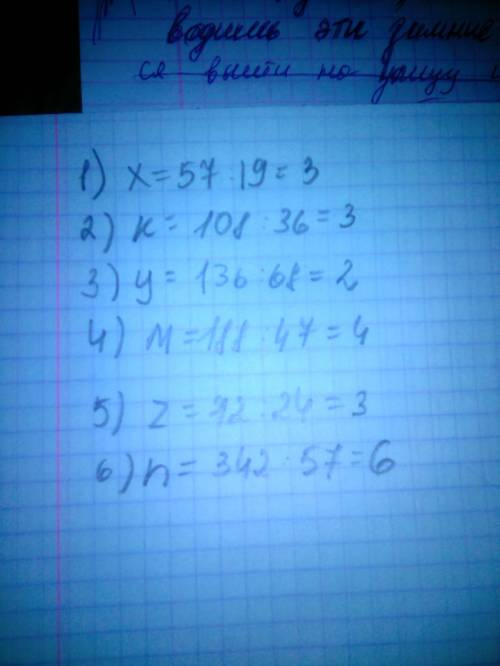 водишь эти зимние
ся выйти на улицу
1) x = 57 : 19 = 3
2) к = 108 : 36 = 3
3) y = 136 : 68 = 2
4) м = 188 : 47 = 4
5) z = 72 : 24 = 3
6) n = 342 : 57 = 6